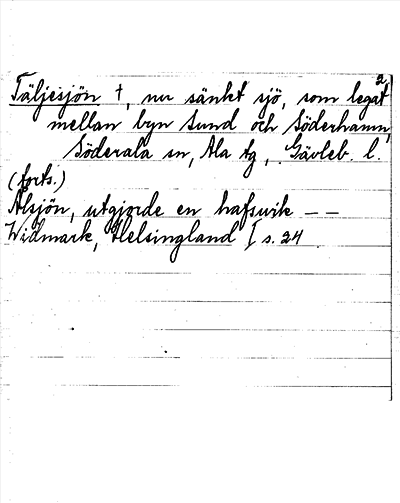 2
Täljesjön †, nu sänkt sjö, som legat
mellan byn Sund och Söderhamn,
Söderala sn, Ala tg, Gävleb. l.
(forts.)
Ålsjön, utgjorde en hafsvik – –
Widmark, Helsingland I s. 24